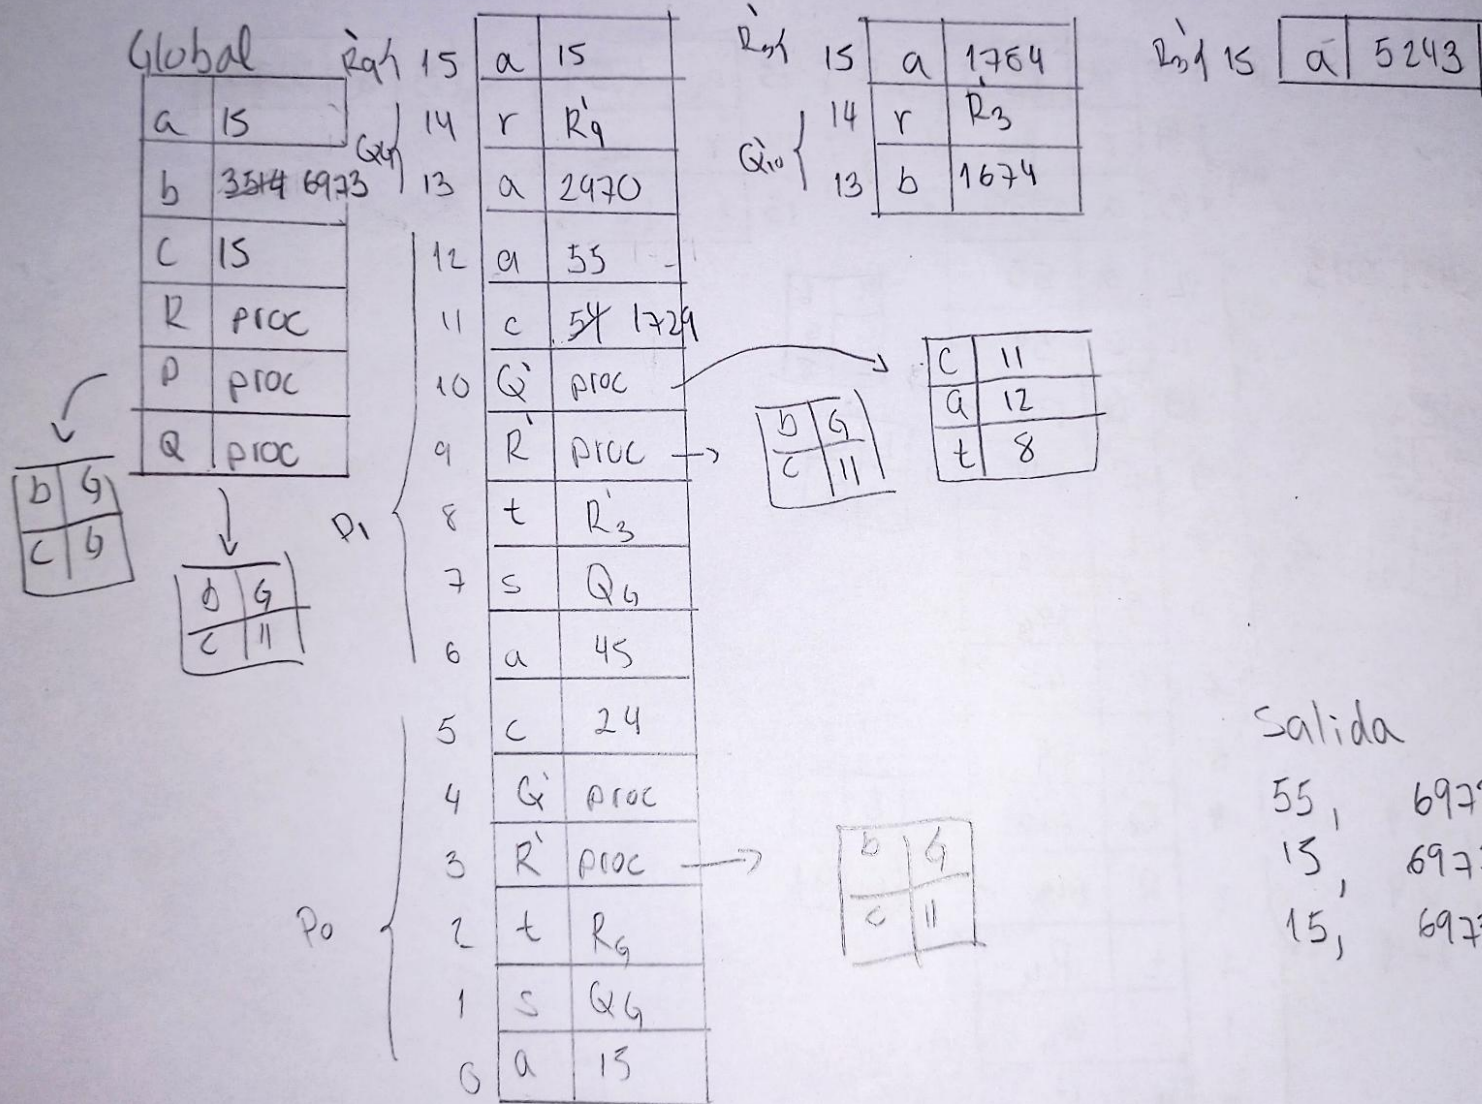 Global
a 15
b 3514 6973
C 15
R proc
P proc
Q proc
b G
C G
b G
C 11
15 a 15
14 r R'9
13 a 2970
12 a 55
11 c 54 1729
10 Q' proc
9 R' proc
8 t R'3
7 s QG
6 a 45
5 c 24
4 Q' proc
3 R' proc
2 t RG
1 s QG
0 a 15
P1
P0
R'3 15 a 1764
14 r R'3
Q'10
13 b 1674
R'3 15 a 5243
C 11
a 12
t 8
b G
C 11
b G
c 11
Salida
55, 697
15, 697
15, 697